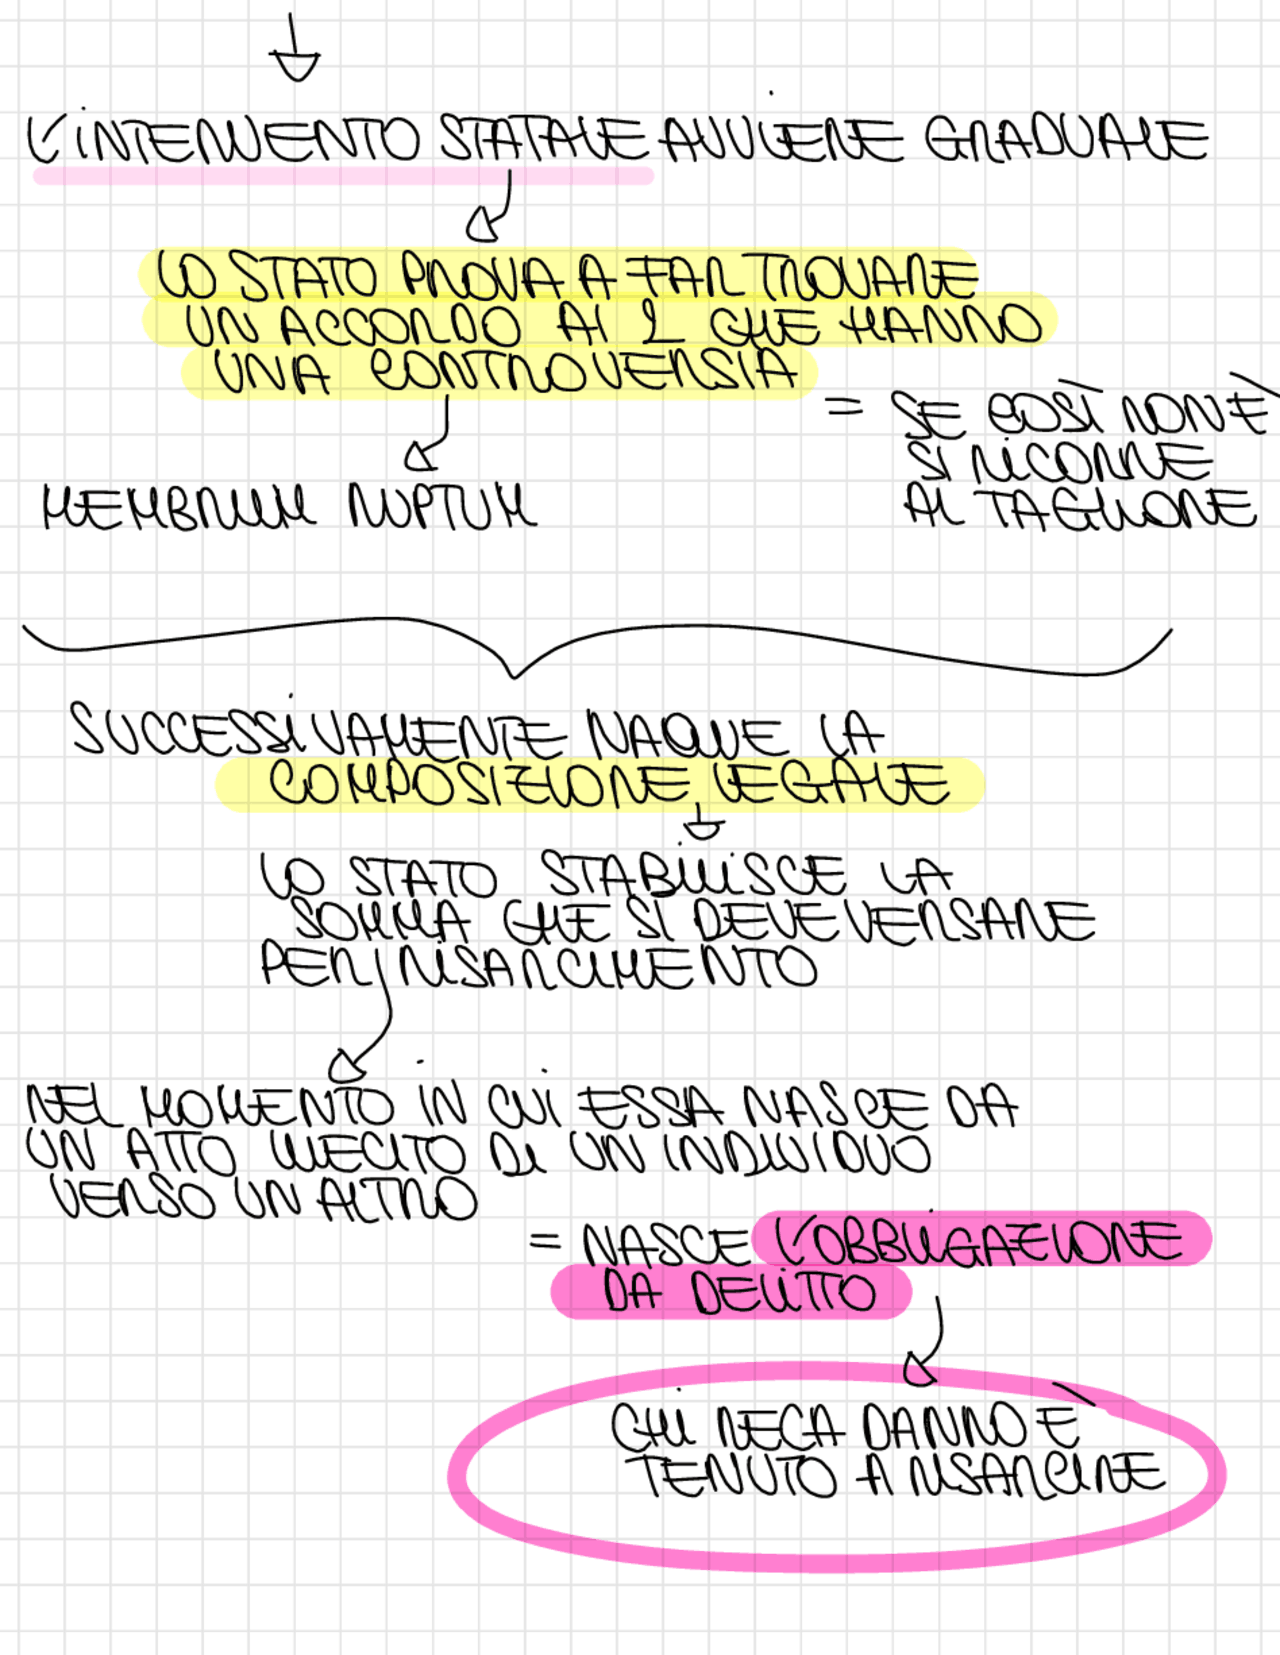 L'INTERVENTO STATALE AVVIENE GRADUALE
LO STATO PROVA A FAR TROVARE
UN ACCORDO AI 2 CHE HANNO
UNA CONTROVERSIA
= SE COSÌ NON È
SI RICORRE
AL TAGLIONE
MEMBRUM RUPTUM
SUCCESSIVAMENTE NAQUE LA
COMPOSIZIONE LEGALE
LO STATO STABILISCE LA
SOMMA CHE SI DEVE VERSARE
PER I RISARCIMENTO
NEL MOMENTO IN CUI ESSA NASCE DA
UN ATTO ILLECITO DI UN INDIVIDUO
VERSO UN ALTRO
= NASCE L'OBBLIGAZIONE
DA DELITTO
CHI RECA DANNO È
TENUTO A RISARCIRE